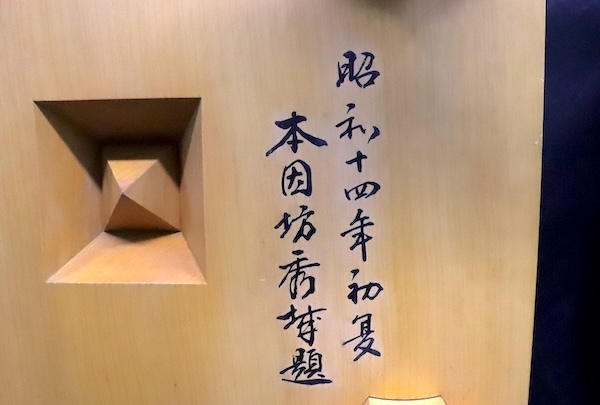 昭和十四年初夏
本因坊秀哉題